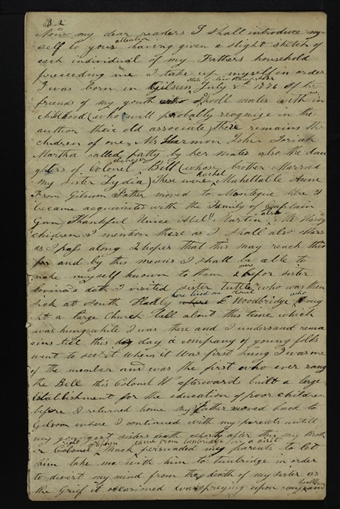 Now my dear readers I shall introduce my-
self to your attention having given a slight sketch of
each individual of my Fathers household
preceeding me I take up myself in order
I was born in Gilsum July 2th 1776 of
friends of my youth who dwelt with in
childhood (who will probably recognize in the
author their old associate) There remains the
children of one Mr Harmon John Josiah
Martha called patty by her mates also the daugh
ters of Colonel Bill (whose brother Married
my Sister Lydia) These were Mehittable Rachel
From Gilsum Father moved to Montague here I
became acquainted with the Family of Captain
Gun Thankful Unice Abel Martin
children I mention them as I shall also others
as I pass along I hope that this may reach
and by this means I shall be able to
make myself known to them before sister
death I visited sister Tuttle who was then
sick at South Hadly Woodbridge
it a large Church Bell about this time which
was hung while I was there and I understand remai
ns till this day a company of young folks
went to see it when it was first hung I was one
of the number and was the first who ever rang
the Bell this Colonel afterwards built a large
establishment for the education of poor children
before I returned home my Father moved back to
Gilsum where I continued with my parents untill
my sisters death shortly after this my Broth
er Colonel Mack persuaded my parents to let
him take me with him to Tunbridge in order
to divert my mind from the death of my sister as
the Grief it occasioned was preying upon my health and